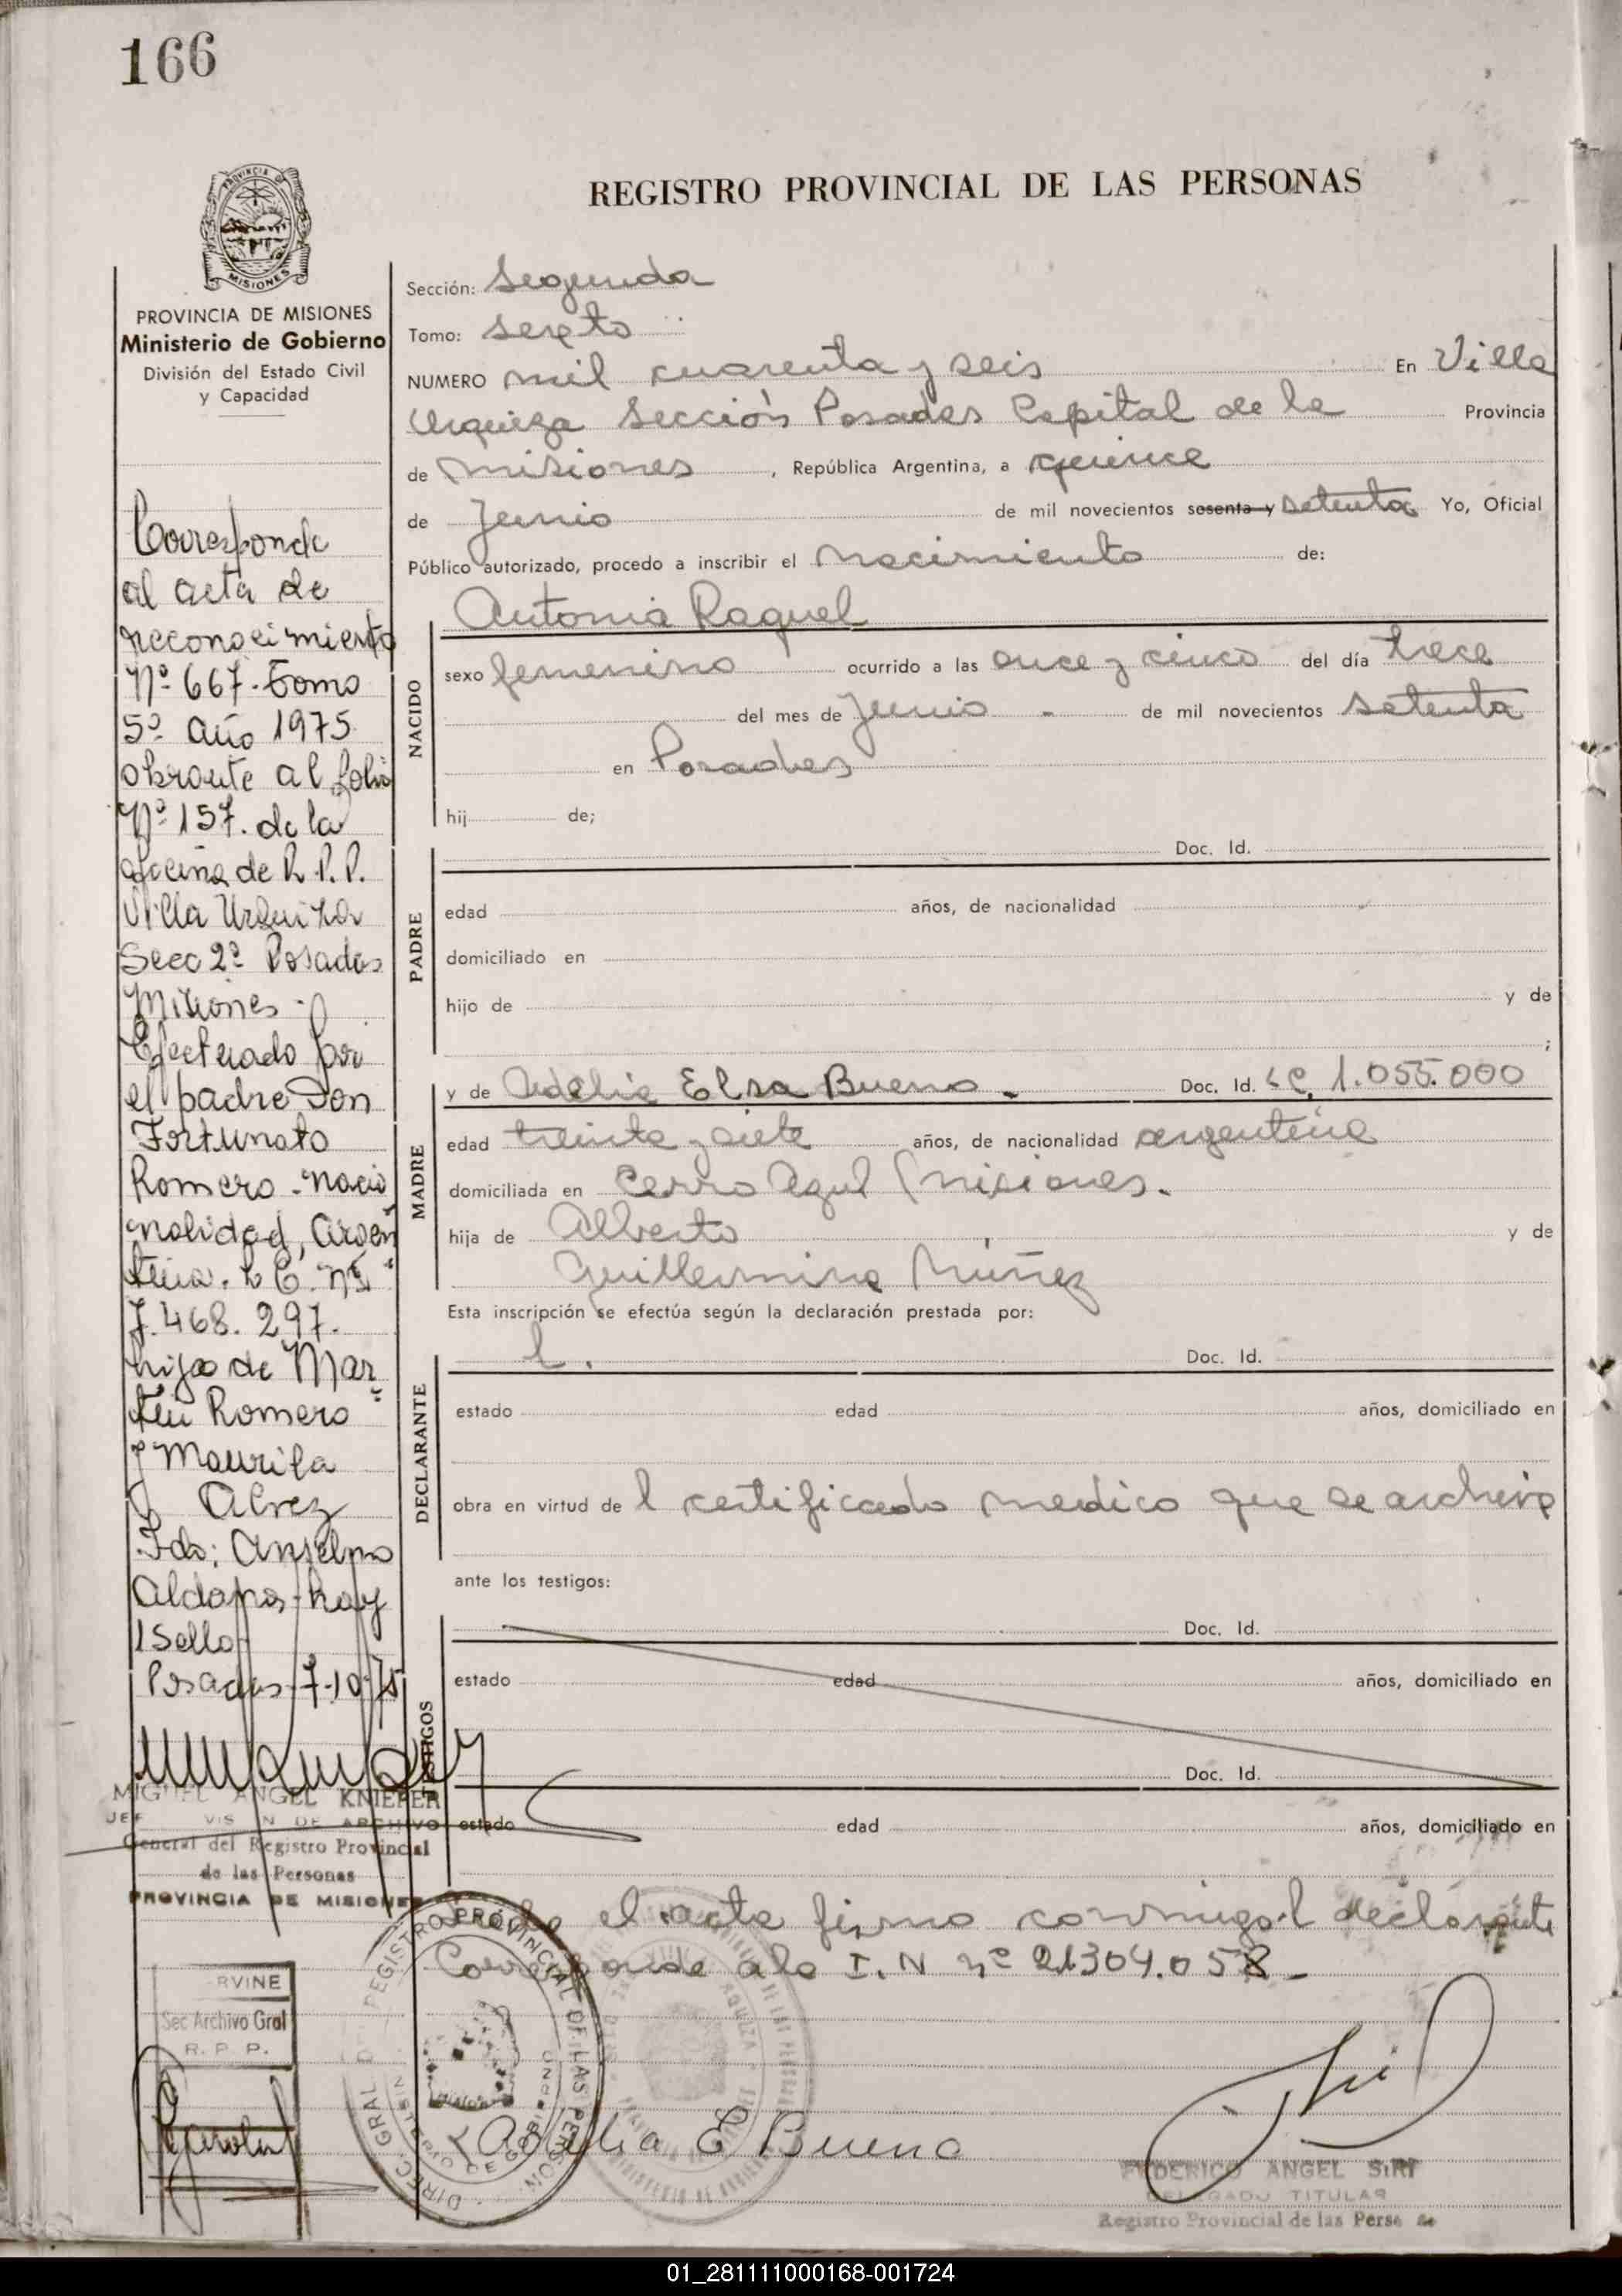 166
REGISTRO PROVINCIAL DE LAS PERSONAS
PROVINCIA DE MISIONES
Ministerio de Gobierno
División del Estado Civil
y Capacidad
Corresponde
al acta de
reconocimiento
Nº 667. Tomo
5º año 1975
obrante al folio
Nº 157. de la
oficina de R.P.P.
Villa Urquiza
Secc 2º Posadas
Misiones -
Efectuado por
el padre Don
Fortunato
Romero - nacio
nalidad, Argen
tina. L E. Nº
7.468.297.
hijo de Mar
tin Romero
y Maurila
Alvez
Fdo: Anselmo
Aldana - hay
1 Sello
Posadas - 7-10-75
MIGUEL ANGEL KNIEPER
JEF VIS N DE ARCHIVO
General del Registro Provincial
de las Personas
PROVINCIA DE MISIONES
RVINE
Sec Archivo Gral
R. P. P.
Sección: Segunda
Tomo: sexto
NUMERO mil cuarenta y seis En Villa
Urquiza Sección Posadas Capital de la Provincia
de Misiones, República Argentina, a quince
de Junio de mil novecientos sesenta y setenta Yo, Oficial
Público autorizado, procedo a inscribir el nacimiento de:
Antonia Raquel
NACIDO
sexo femenino ocurrido a las once y cinco del día trece
del mes de Junio - de mil novecientos setenta
en Posadas
hij de;
PADRE
Doc. Id.
edad años, de nacionalidad
domiciliado en
hijo de y de
;
MADRE
y de Adelia Elsa Bueno. - Doc. Id. LC 1.055.000
edad treinta y siete años, de nacionalidad argentina
domiciliada en Cerro Azul Misiones.
hija de Alberto y de
Guillermina Núñez
Esta inscripción se efectúa según la declaración prestada por:
DECLARANTE
l. Doc. Id.
estado edad años, domiciliado en
obra en virtud de l certificado medico que se archiva
ante los testigos:
TESTIGOS
Doc. Id.
estado edad años, domiciliado en
Doc. Id.
estado edad años, domiciliado en
el acta firma conmigo l declarante
Corresponde a la I.N nº 21304.058 -
DIREC. GRAL DEL REGISTRO PROVINCIAL DE LAS PERSON.
MINISTERIO DE GOBIERNO
Adelia E Bueno
FEDERICO ANGEL SIRI
DELEGADO TITULAR
Registro Provincial de las Perso
01_281111000168-001724